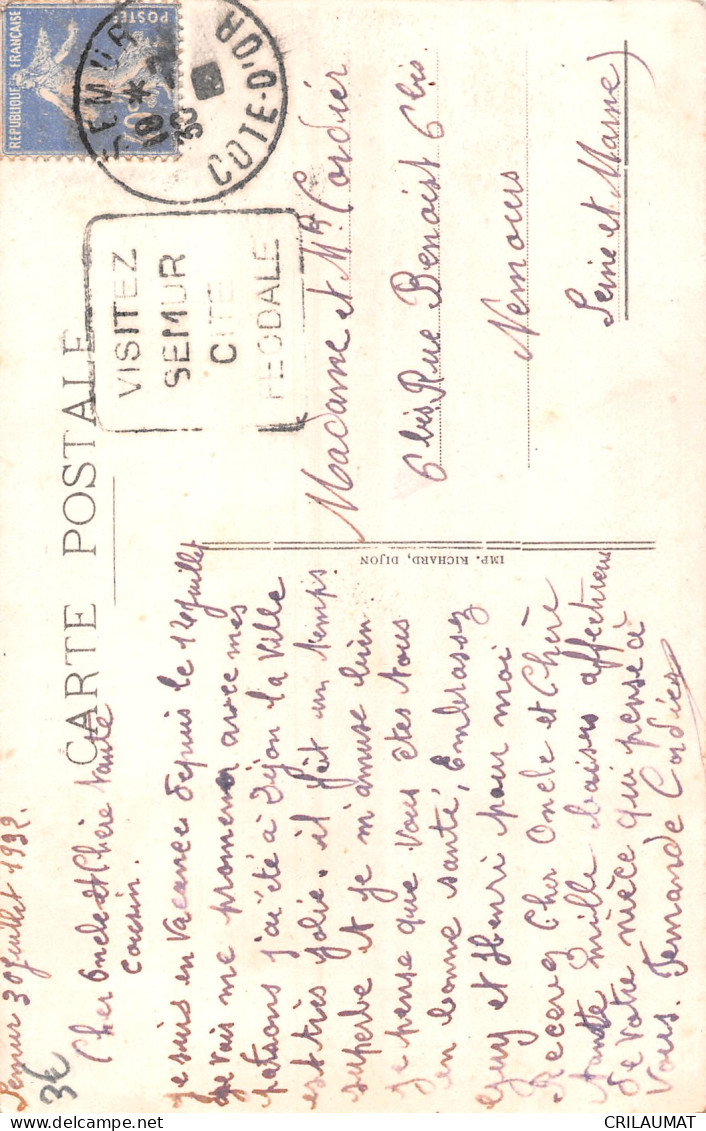 CARTE POSTALE
REPUBLIQUE FRANÇAISE
POSTES
SEMUR
COTE-D'OR
18 *
30
VISITEZ
SEMUR
CITE
FEODALE
Madame et Mr Cordier
6 bis Rue Benoist 6 bis.
Nemours
Seine et Marne)
IMP. RICHARD, DIJON
Semur 30 Juillet 1932.
Cher Oncle et Chère tante
cousin.
je suis en vacance depuis le 14 juillet
je vais me promener avec mes
patrons j'ai été à Dijon la ville
est très jolie. il fait un temps
superbe et je m'amuse bien
je pense que vous êtes tous
en bonne santé, Embrassez
Guy et Henri pour moi
Recevez Cher Oncle et Chère
tante mille baisers affectueux
de votre nièce qui pense à
vous. Fernande Cordier
3€
CRILAUMAT